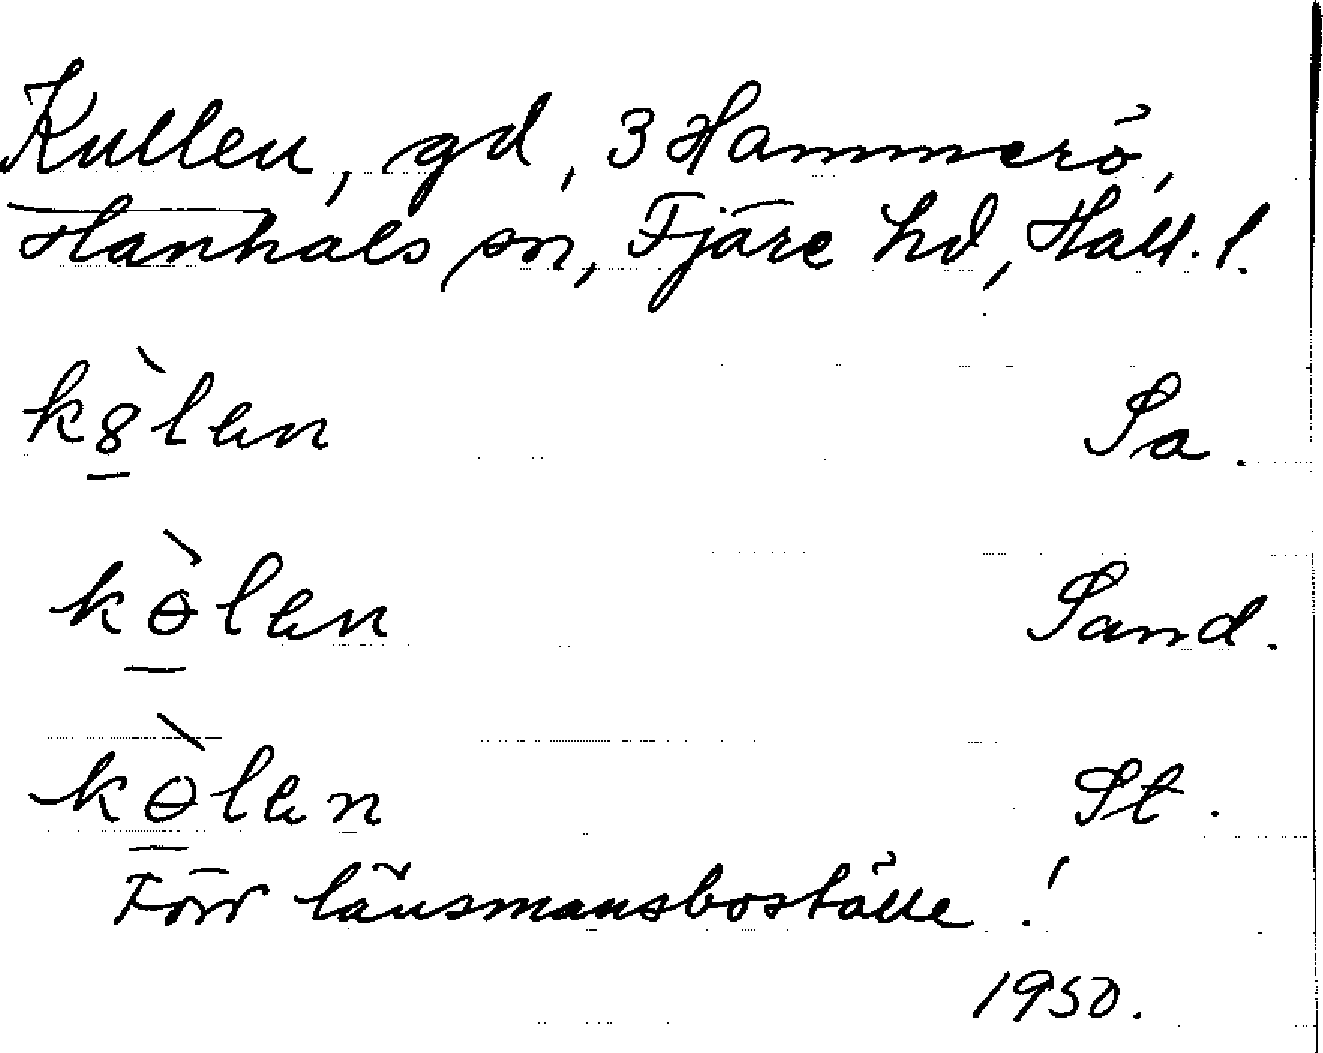 Kullen, gd, 3 Hammerö,
Hanhals sn, Fjäre hd, Hall. l.
kö̀len Sa.
kɵ̀len Sand.
kɵ̀len St.
Förr länsmansboställe!
1950.